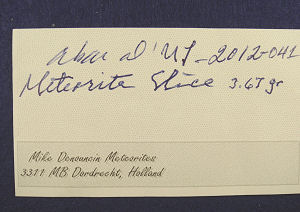 abar al' Uj - 2012-041
Meteorite Slice 3.67 gr
Mike Denouncin Meteorites
3311 MB Dordrecht, Holland